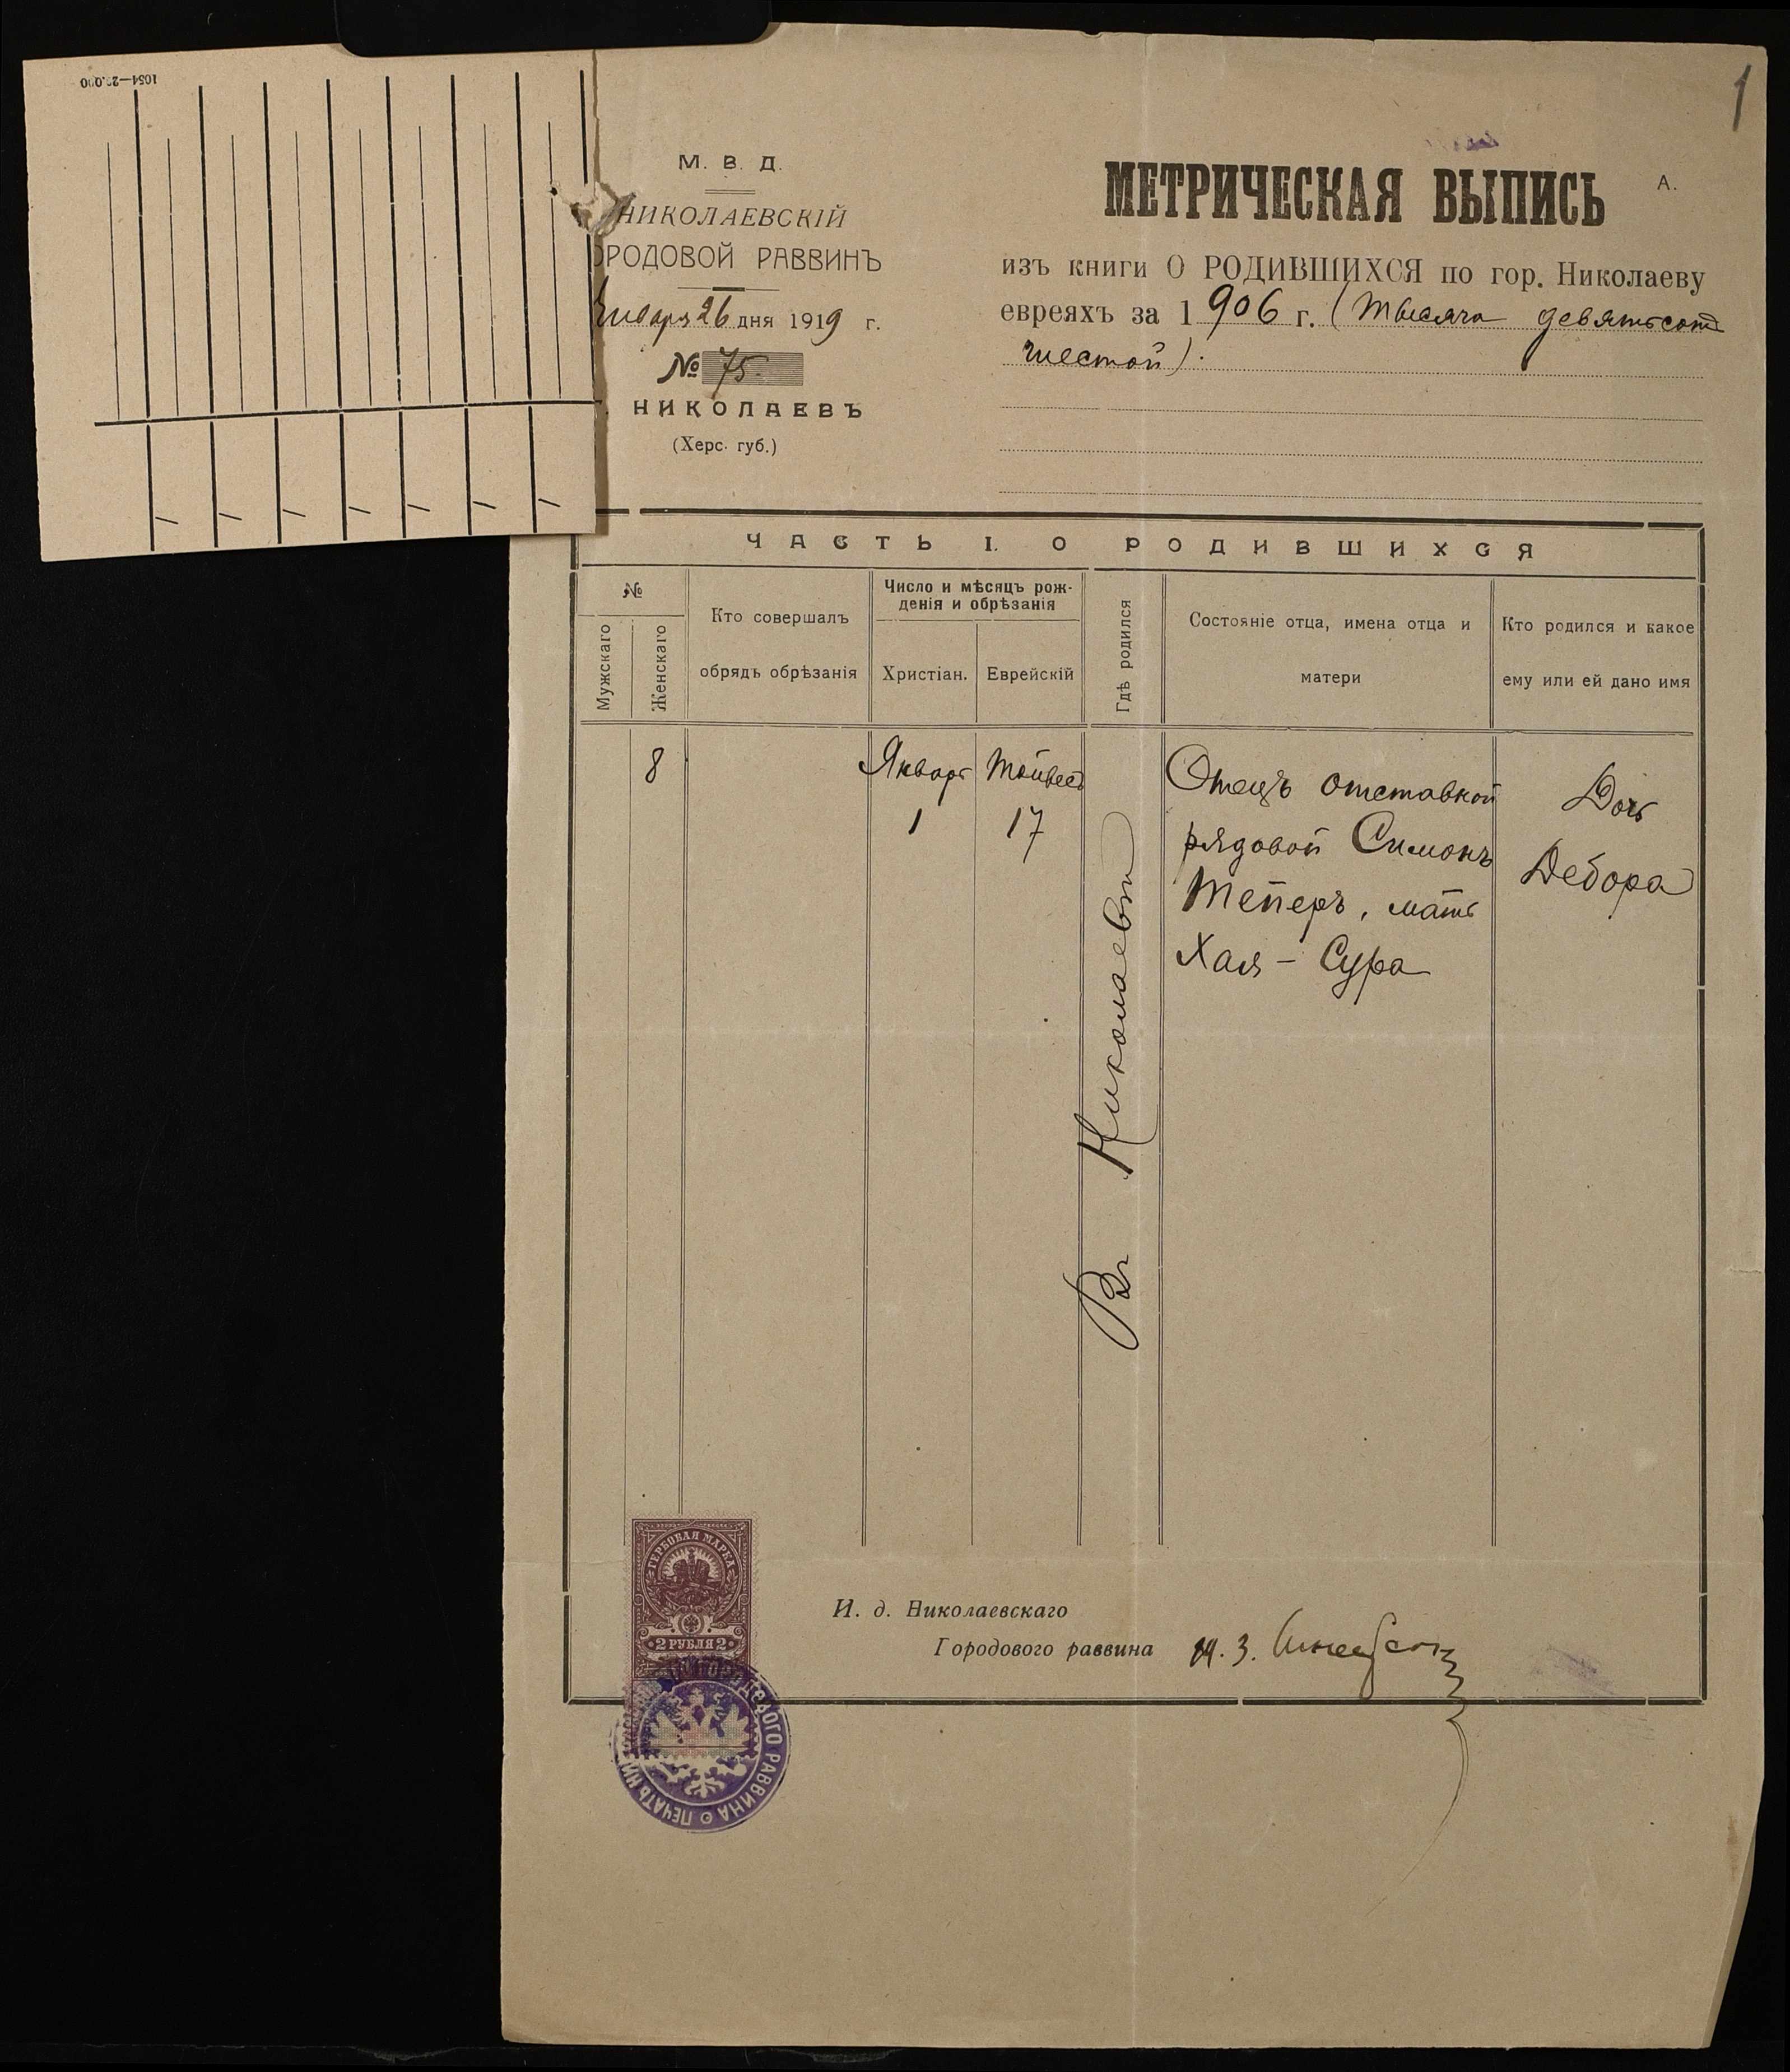 1
М. В. Д.
НИКОЛАЕВСКІЙ
ОРОДОВОЙ РАВВИНЪ
Января 26 дня 1919 г.
№ 75
НИКОЛАЕВЪ
(Херс. губ.)
МЕТРИЧЕСКАЯ ВЫПИСЬ
А.
изъ книги О РОДИВШИХСЯ по гор. Николаеву
евреяхъ за 1906 г. (Тысяча девятьсотъ
шестой).
ЧАСТЬ I. О РОДИВШИХСЯ
№
Мужскаго
Женскаго
Кто совершалъ
обрядъ обрѣзанія
Число и мѣсяцъ рож-
денія и обрѣзанія
Христіан.
Еврейскій
Гдѣ родился
Состояніе отца, имена отца и
матери
Кто родился и какое
ему или ей дано имя
8
Январь
1
Тейвес
17
Въ Николаевѣ
Отецъ отставной
рядовой Симонъ
Теперъ, мать
Хая - Сура
Дочь
Дебора
И. д. Николаевскаго
Городового раввина
ГЕРБОВАЯ МАРКА
2 РУБЛЯ 2
ГОРОДОВОГО РАВВИНА ПЕЧАТЬ